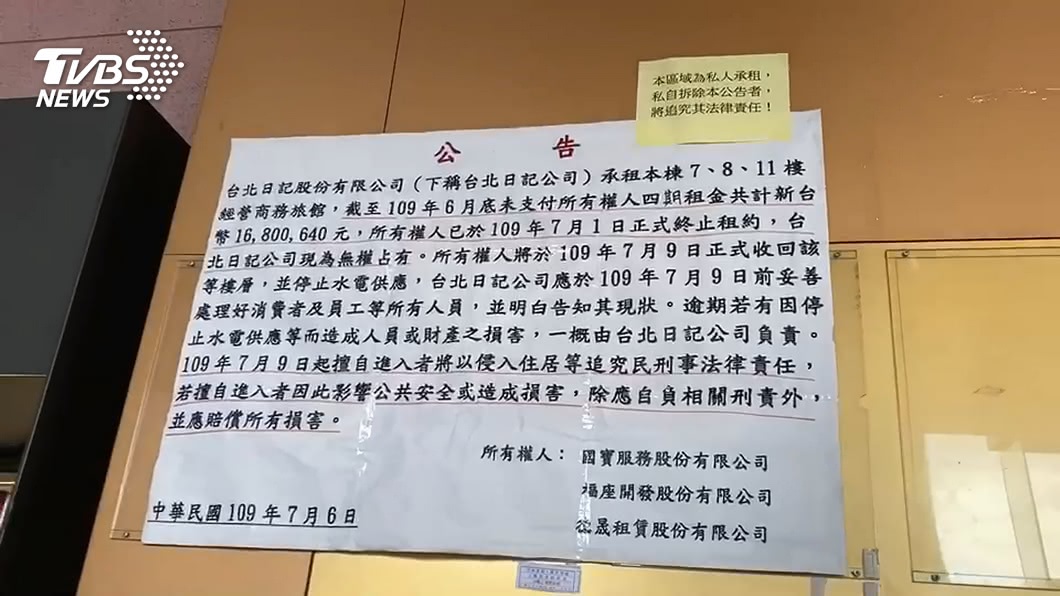 TVBS
NEWS
本區域為私人承租，
私自拆除本公告者，
將追究其法律責任！
公告
台北日記股份有限公司（下稱台北日記公司）承租本棟7、8、11樓
經營商務旅館，截至109年6月底未支付所有權人四期租金共計新台
幣16,800,640元，所有權人已於109年7月1日正式終止租約，台
北日記公司現為無權占有。所有權人將於109年7月9日正式收回該
等樓層，並停止水電供應，台北日記公司應於109年7月9日前妥善
處理好消費者及員工等所有人員，並明白告知其現狀。逾期若有因停
止水電供應等而造成人員或財產之損害，一概由台北日記公司負責。
109年7月9日起擅自進入者將以侵入住居等追究民刑事法律責任，
若擅自進入者因此影響公共安全或造成損害，除應自負相關刑責外，
並應賠償所有損害。
所有權人：國寶服務股份有限公司
福座開發股份有限公司
晟租賃股份有限公司
中華民國109年7月6日